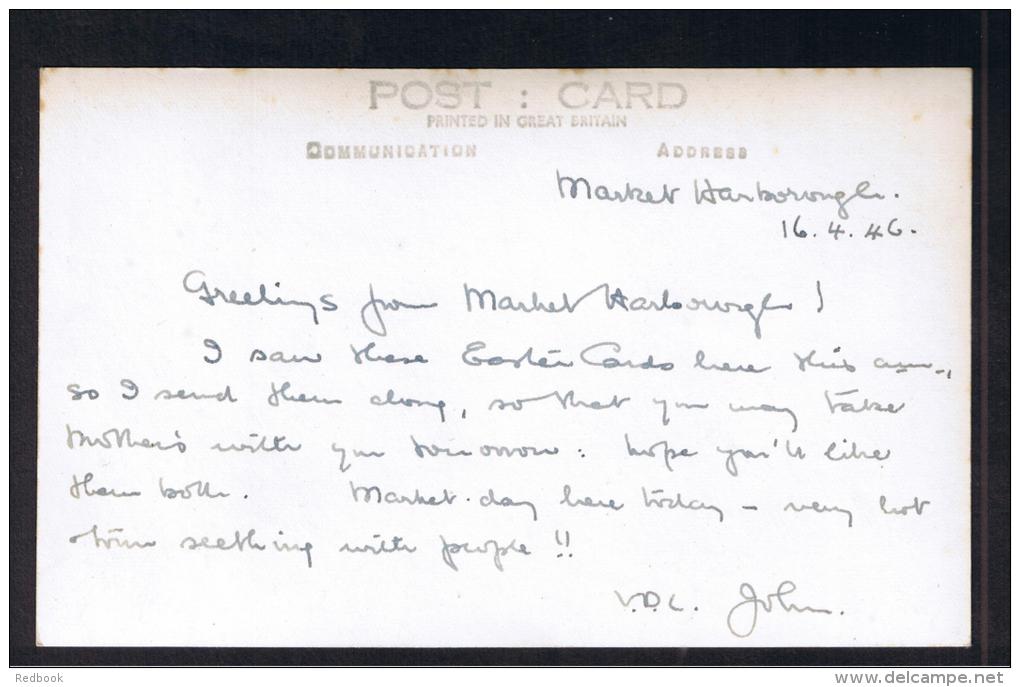 POST : CARD
PRINTED IN GREAT BRITAIN
COMMUNICATION ADDRESS
Market Harborough.
16.4.46.
Greetings from Market Harborough!
I saw these Easter Cards here this a.m.,
so I send them along, so that you may take
Mother's with you tomorrow: hope you'll like
them both. Market-day here today – very hot
& town seething with people!!
V.D.L. John.
Redbook
www.delcampe.net